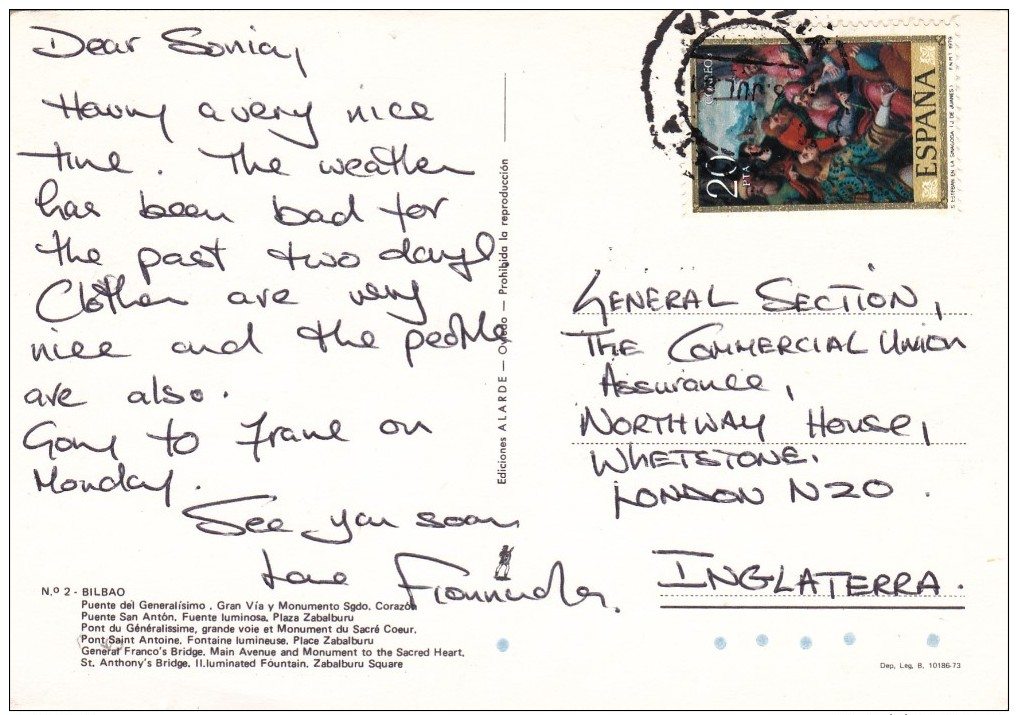 Dear Sonia,
Having a very nice
time. The weather
has been bad for
the past two days.
Clothes are very
nice and the people
are also.
Going to France on
Monday.
See you soon
Love Fionnuala.
CORREOS
20 PTA
ESPAÑA
S. ESTEBAN EN LA SINAGOGA (J. DE JUANES) F.N.M.T. 1979
GENERAL SECTION,
THE COMMERCIAL UNION
Assurance,
NORTHWAY HOUSE,
WHETSTONE.
LONDON N20.
INGLATERRA.
Ediciones ALARDE — Oviedo — Prohibida la reproducción
N.º 2 - BILBAO
Puente del Generalísimo, Gran Vía y Monumento Sgdo. Corazón
Puente San Antón, Fuente luminosa, Plaza Zabalburu
Pont du Généralissime, grande voie et Monument du Sacré Coeur,
Pont Saint Antoine, Fontaine lumineuse, Place Zabalburu
General Franco's Bridge, Main Avenue and Monument to the Sacred Heart,
St. Anthony's Bridge, Il.luminated Fountain, Zabalburu Square
Dep. Leg. B. 10186-73